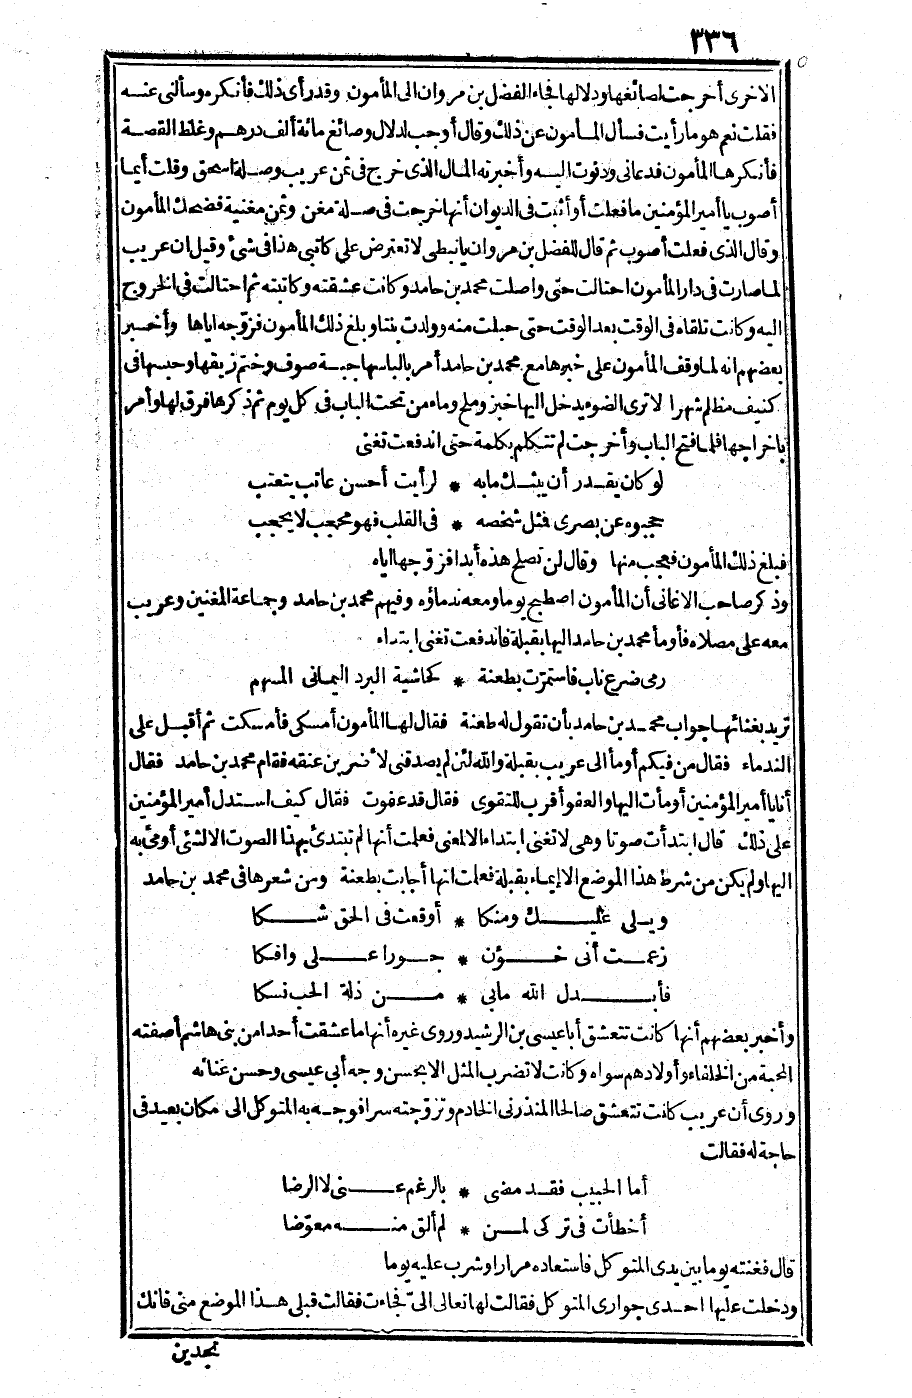 ٣٣٦
الاخرى أخرجت لصائغها ودلالها فجاء الفضل بن مروان الى المأمون وقد رأى ذلك فأنكره وسألنى عنه
فقلت نعم هو ما رأيت فسأل المأمون عن ذلك وقال أوجب لدلال وصائغ مائة ألف درهم وغلظ القصة
فأنكرها المأمون فدعانى ودنوت اليه وأخبرته المال الذى خرج فى ثمن عريب وصلة اسحق وقلت أيما
أصوب يا أمير المؤمنين ما فعلت أو أثبت فى الديوان أنها خرجت فى صلة مغن وثمن مغنية فضحك المأمون
وقال الذى فعلت أصوب ثم قال للفضل بن مروان يا نبطى لا تعترض على كاتبى هذا فى شئ وقيل ان عريب
لما صارت فى دار المأمون احتالت حتى واصلت محمد بن حامد وكانت عشقته وكاتبته ثم احتالت فى الخروج
اليه وكانت تلقاه فى الوقت بعد الوقت حتى حبلت منه وولدت بنتا وبلغ ذلك المأمون فزوجه اياها وأخبر
بعضهم انه لما وقف المأمون على خبرها مع محمد بن حامد أمر بالباسها جبة صوف وختم زيقها وحبسها فى
كنيف مظلم شهرا لا ترى الضوء يدخل اليها خبز وملح وماء من تحت الباب فى كل يوم ثم ذكرها فرق لها وأمر
باخراجها فلما فتح الباب وأخرجت لم تتكلم بكلمة حتى اندفعت تغنى
لو كان يقدر أن يبثك ما به * لرأيت أحسن عاتب يتعتب
حجبوه عن بصرى فمثل شخصه * فى القلب فهو محجب لا يحجب
فبلغ ذلك المأمون فعجب منها وقال لن تصلح هذه أبدا فزوّجها اياه
وذكر صاحب الاغانى أن المأمون اصطبح يوما ومعه ندماؤه وفيهم محمد بن حامد وجماعة المغنين وعريب
معه على مصلاه فأومأ محمد بن حامد اليها بقبلة فاندفعت تغنى ابتداء
رمى ضرع ناب فاستمرّت بطعنة * كحاشية البرد اليمانى المسهم
تريد بغنائها جواب محمد بن حامد بأن تقول له طعنة فقال لها المأمون أمسكى فأمسكت ثم أقبل على
الندماء فقال من فيكم أومأ الى عريب بقبلة والله لئن لم يصدقنى لأضربن عنقه فقام محمد بن حامد فقال
أنا يا أمير المؤمنين أومأت اليها والعفو أقرب للتقوى فقال قد عفوت فقال كيف استدل أمير المؤمنين
على ذلك قال ابتدأت صوتا وهى لا تغنى ابتداء الا لمعنى فعلمت أنها لم تبتدئ بهذا الصوت الا لشئ أومئ به
اليها ولم يكن من شرط هذا الموضع الا ايماء بقبلة فعلمت انها أجابت بطعنة ومن شعرها فى محمد بن حامد
ويلى عليك ومنكا * أوقعت فى الحق شكا
زعمت أنى خؤن * جورا على وافكا
فأبدل الله ما بى * من ذلة الحب نسكا
وأخبر بعضهم أنها كانت تتعشق أبا عيسى بن الرشيد وروى غيره أنها ما عشقت أحدا من بنى هاشم أصفته
المحبة من الخلفاء وأولادهم سواه وكانت لا تضرب المثل الا بحسن وجه أبى عيسى وحسن غنائه
وروى أن عريب كانت تتعشق صالحا المنذرى الخادم وتزوجته سرا فوجه به المتوكل الى مكان بعيد فى
حاجة له فقالت
أما الحبيب فقد مضى * بالرغم عنى لا الرضا
أخطأت فى تركى لمن * لم ألق منه معوّضا
قال فغنته يوما بين يدى المتوكل فاستعاده مرارا وشرب عليه يوما
ودخلت عليها احدى جوارى المتوكل فقالت لها تعالى الىّ فجاءت فقالت قبلى هذا الموضع منى فانك
تجدين